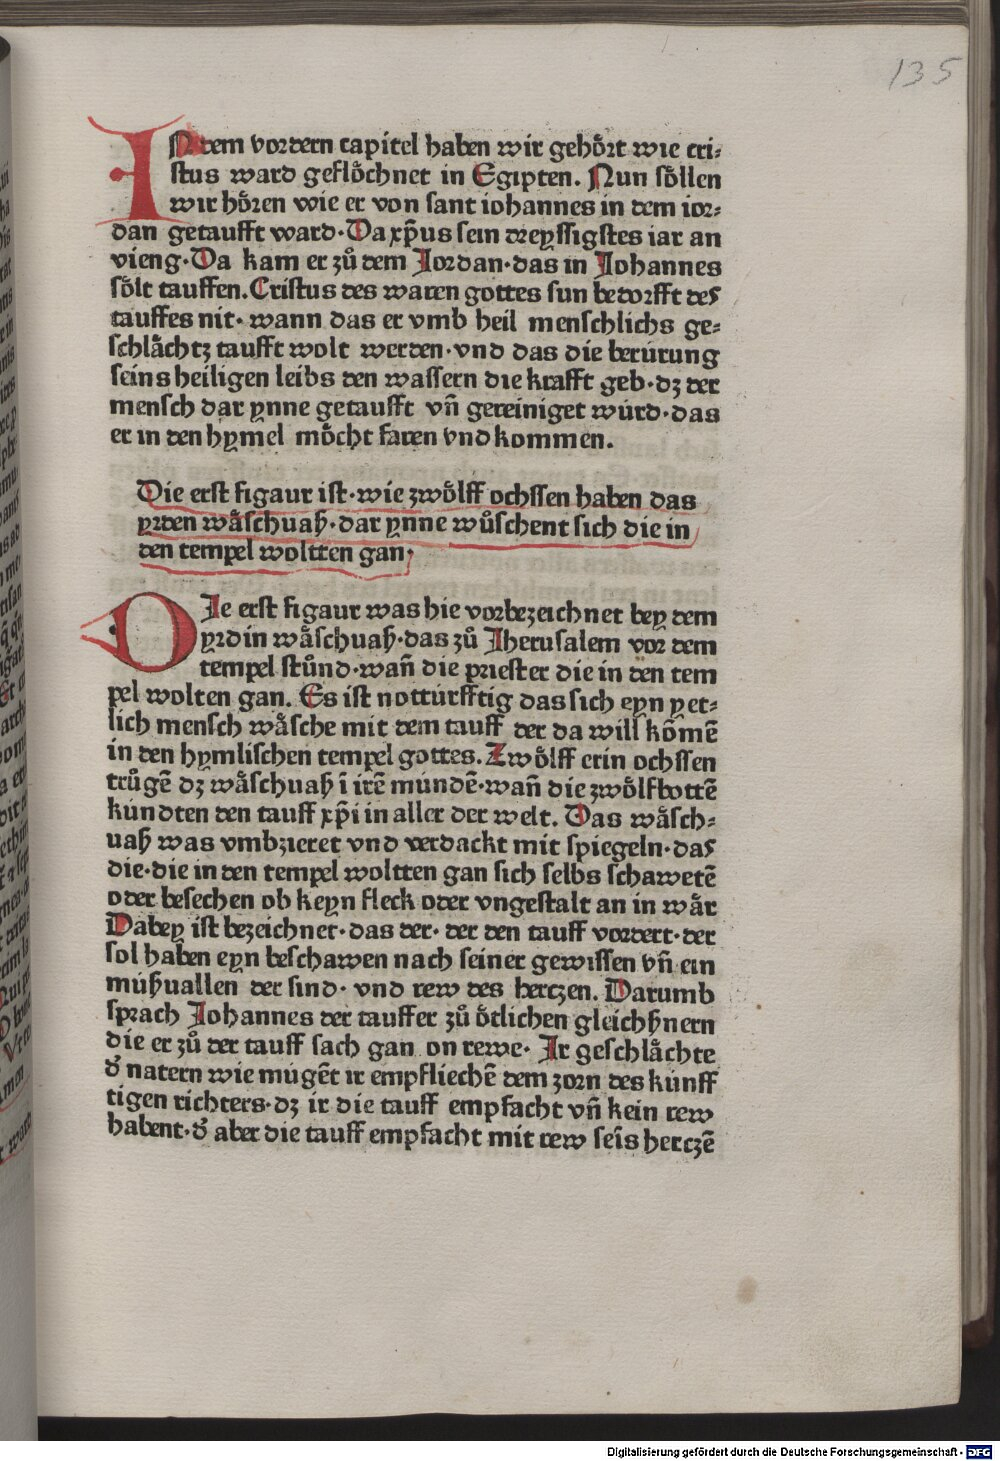 135
IN dem vordern capitel haben wir gehoͤrt wie cri⸗
stus ward gefloͤchnet in Egipten. Nun soͤllen
wir hoͤren wie er von sant iohannes in dem ior⸗
dan getaufft ward· Da xp̄us sein dreyssigstes iar an
vieng· Da kam er zuͦ dem Jordan· das in Johannes
soͤlt tauffen. Cristus des waren gottes sun bedorfft des
tauffes nit· wann das er vmb heil menschlichs ge⸗
schlaͤchtz taufft wolt werden· vnd das die berúrung
seins heiligen leibs den wassern die krafft geb· dz der
mensch dar ynne getaufft vn̄ gereiniget wúrd· das
er in den hymel moͤcht faren vnd kommen.
Die erst figaur ist· wie zwoͤlff ochssen haben das
yrden waͤschuaß· dar ynne wuͤschent sich die in
den tempel woltten gan·
DIe erst figaur was hie vorbezeichnet bey dem
yrdin waͤschuaß· das zuͦ Jherusalem vor dem
tempel stuͦnd· wan̄ die priester die in den tem
pel wolten gan. Es ist notturfftig das sich eyn yet⸗
lich mensch waͤsche mit dem tauff der da will kōmē
in den hymlischen tempel gottes. Zwoͤlff erin ochssen
truͦgē dz waͤschuaß ī irē mundē· wan̄ die zwoͤlfbottē
kúndten den tauff xp̄i in aller der welt. Das waͤsch⸗
uaß was vmbzieret vnd verdackt mit spiegeln· das
die· die in den tempel woltten gan sich selbs schawetē
oder besechen ob keyn fleck oder vngestalt an in waͤr
Dabey ist bezeichnet· das der· der den tauff vordert· der
sol haben eyn beschawen nach seiner gewissen vn̄ ein
mißuallen der sind· vnd rew des hertzen. Darumb
sprach Johannes der tauffer zuͦ oͤtlichen gleichßnern
die er zuͦ der tauff sach gan on rewe· Ir geschlaͤchte
đ natern wie mugēt ir empfliechē dem zorn des kúnff
tigen richters· dz ir die tauff empfacht vn̄ kein rew
habent· đ aber die tauff empfacht mit rew seīs hertzē
Digitalisierung gefördert durch die Deutsche Forschungsgemeinschaft · DFG